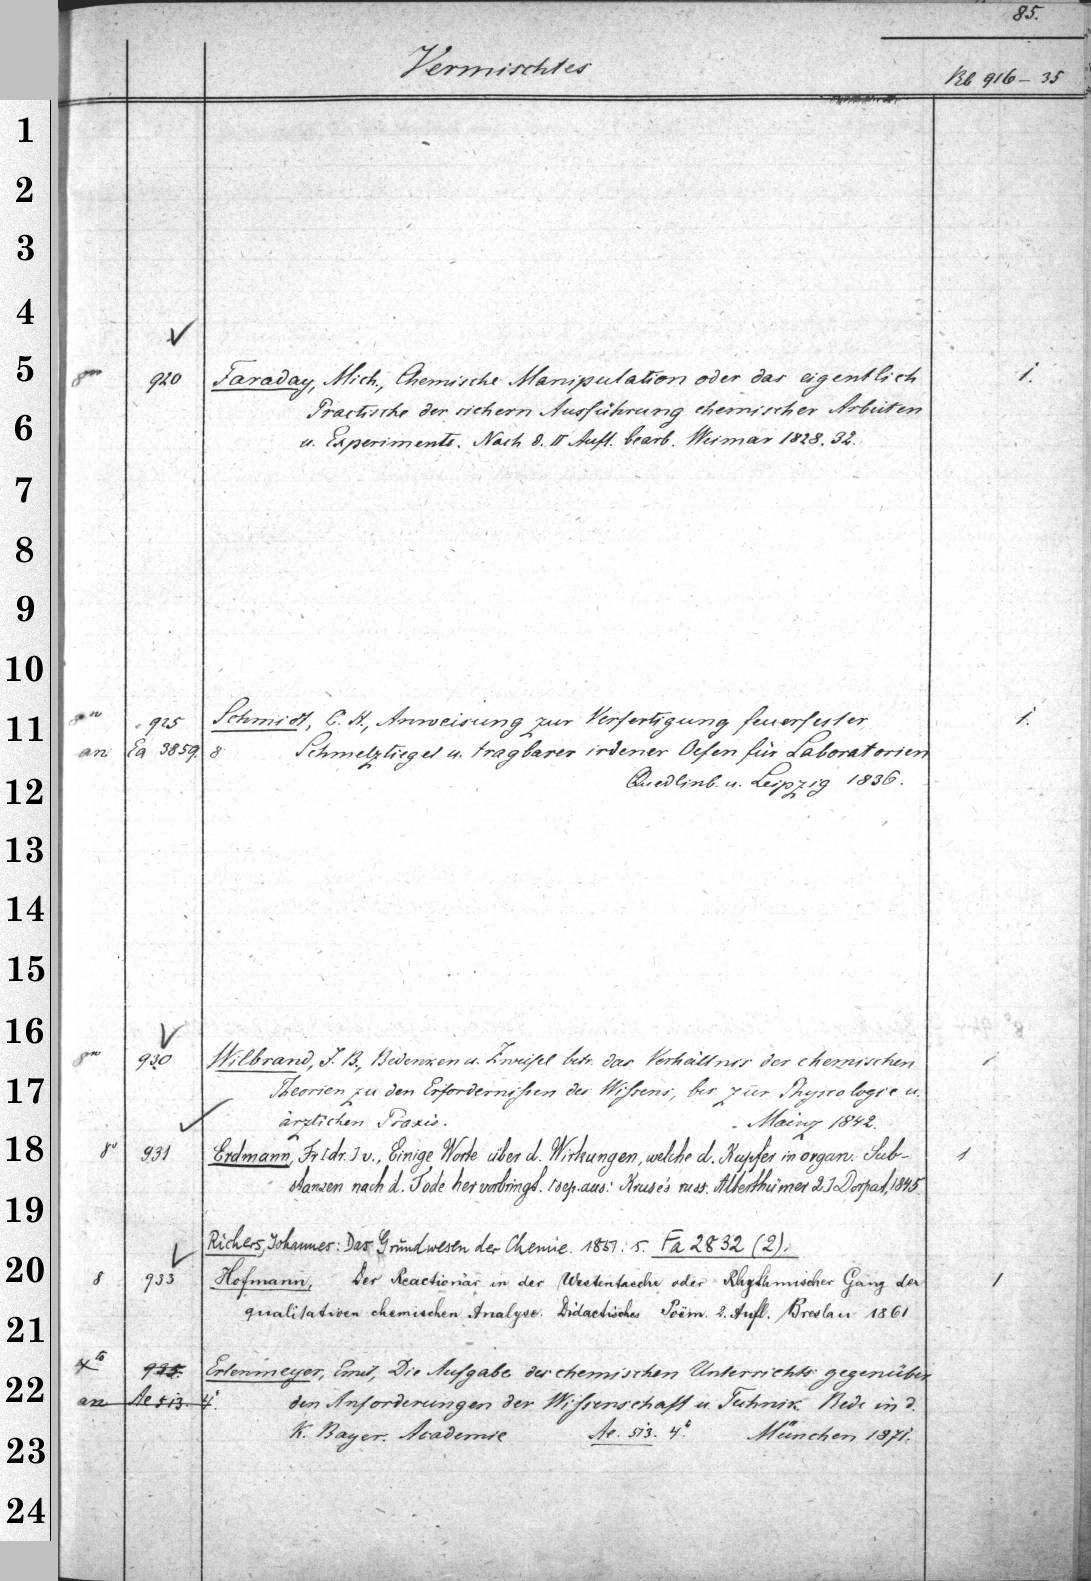 85.
Vermischtes
Kb 916-35
1
2
3
4
5
8vo 920 Faraday, Mich., Chemische Manipulation oder das eigentlich 1.
Practische der sichern Ausführung chemischer Arbeiten
6
u. Experimente. Nach d. II Aufl. bearb. Weimar 1828. 32.
7
8
9
10
11
8vo 925 Schmidt, C. H., Anweisung zur Verfertigung feuerfester 1.
an Ea 3859. 8 Schmelztiegel u. tragbarer irdener Oefen für Laboratorien
12
Quedlinb. u. Leipzig 1836.
13
14
15
16
8vo 930 Wilbrand, J. B., Bedenken u. Zweifel betr. das Verhältnis der chemischen 1
17
Theorien zu den Erfordernißen des Wißens, bes zur Physiologie u.
ärztlichen Praxis. Mainz 1842.
18
8o 931 Erdmann, Fr[dr.] v., Einige Worte über d. Wirkungen, welche d. Kupfer in organ. Sub- 1
stanzen nach d. Tode hervorbringt. [sep. aus: Kruse's russ. Alterthümer 2] Dorpat, 1845
19
Richers, Johannes: Das Grundwesen der Chemie. 1851: s. Fa 2832 (2).
20
8 933 Hofmann, Der Reactionär in der Westentasche oder Rhythmischer Gang der 1
qualitativen chemischen Analyse. Didactisches Poëm. 2. Aufl. Breslau 1861
21
4to 935. Erlenmeyer, Emil, Die Aufgabe des chemischen Unterrichts gegenüber
22
an Ae 513. 4o den Anforderungen der Wißenschaft u. Technik Rede in d.
23
K. Bayer. Academie Ae. 513. 4o. München 1871.
24